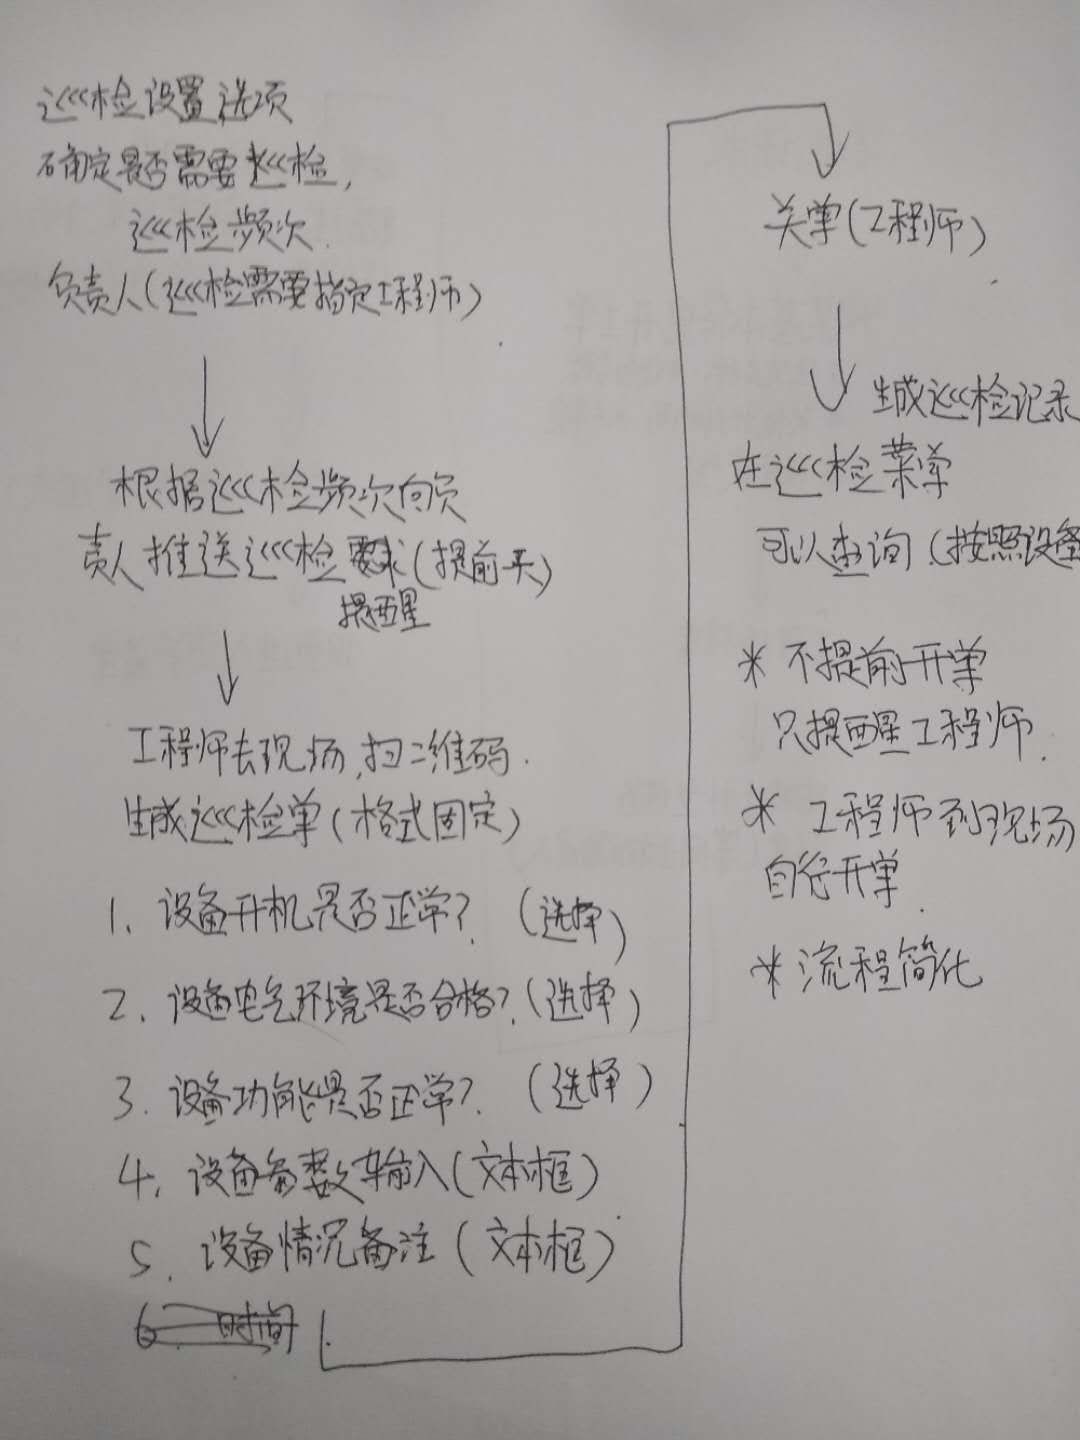 巡检设置选项
确定是否需要巡检,
巡检频次.
负责人(巡检需要指定工程师)
根据巡检频次向负
责人推送巡检要求(提前一天)
提醒
工程师去现场,扫二维码.
生成巡检单(格式固定)
1. 设备开机是否正常? (选择)
2. 设备电气环境是否合格? (选择)
3. 设备功能是否正常? (选择)
4. 设备参数输入(文本框)
5. 设备情况备注(文本框)
6 时间
关单(工程师)
生成巡检记录
在巡检菜单
可以查询(按照设备
* 不提前开单
只提醒工程师.
* 工程师到现场
自行开单.
* 流程简化